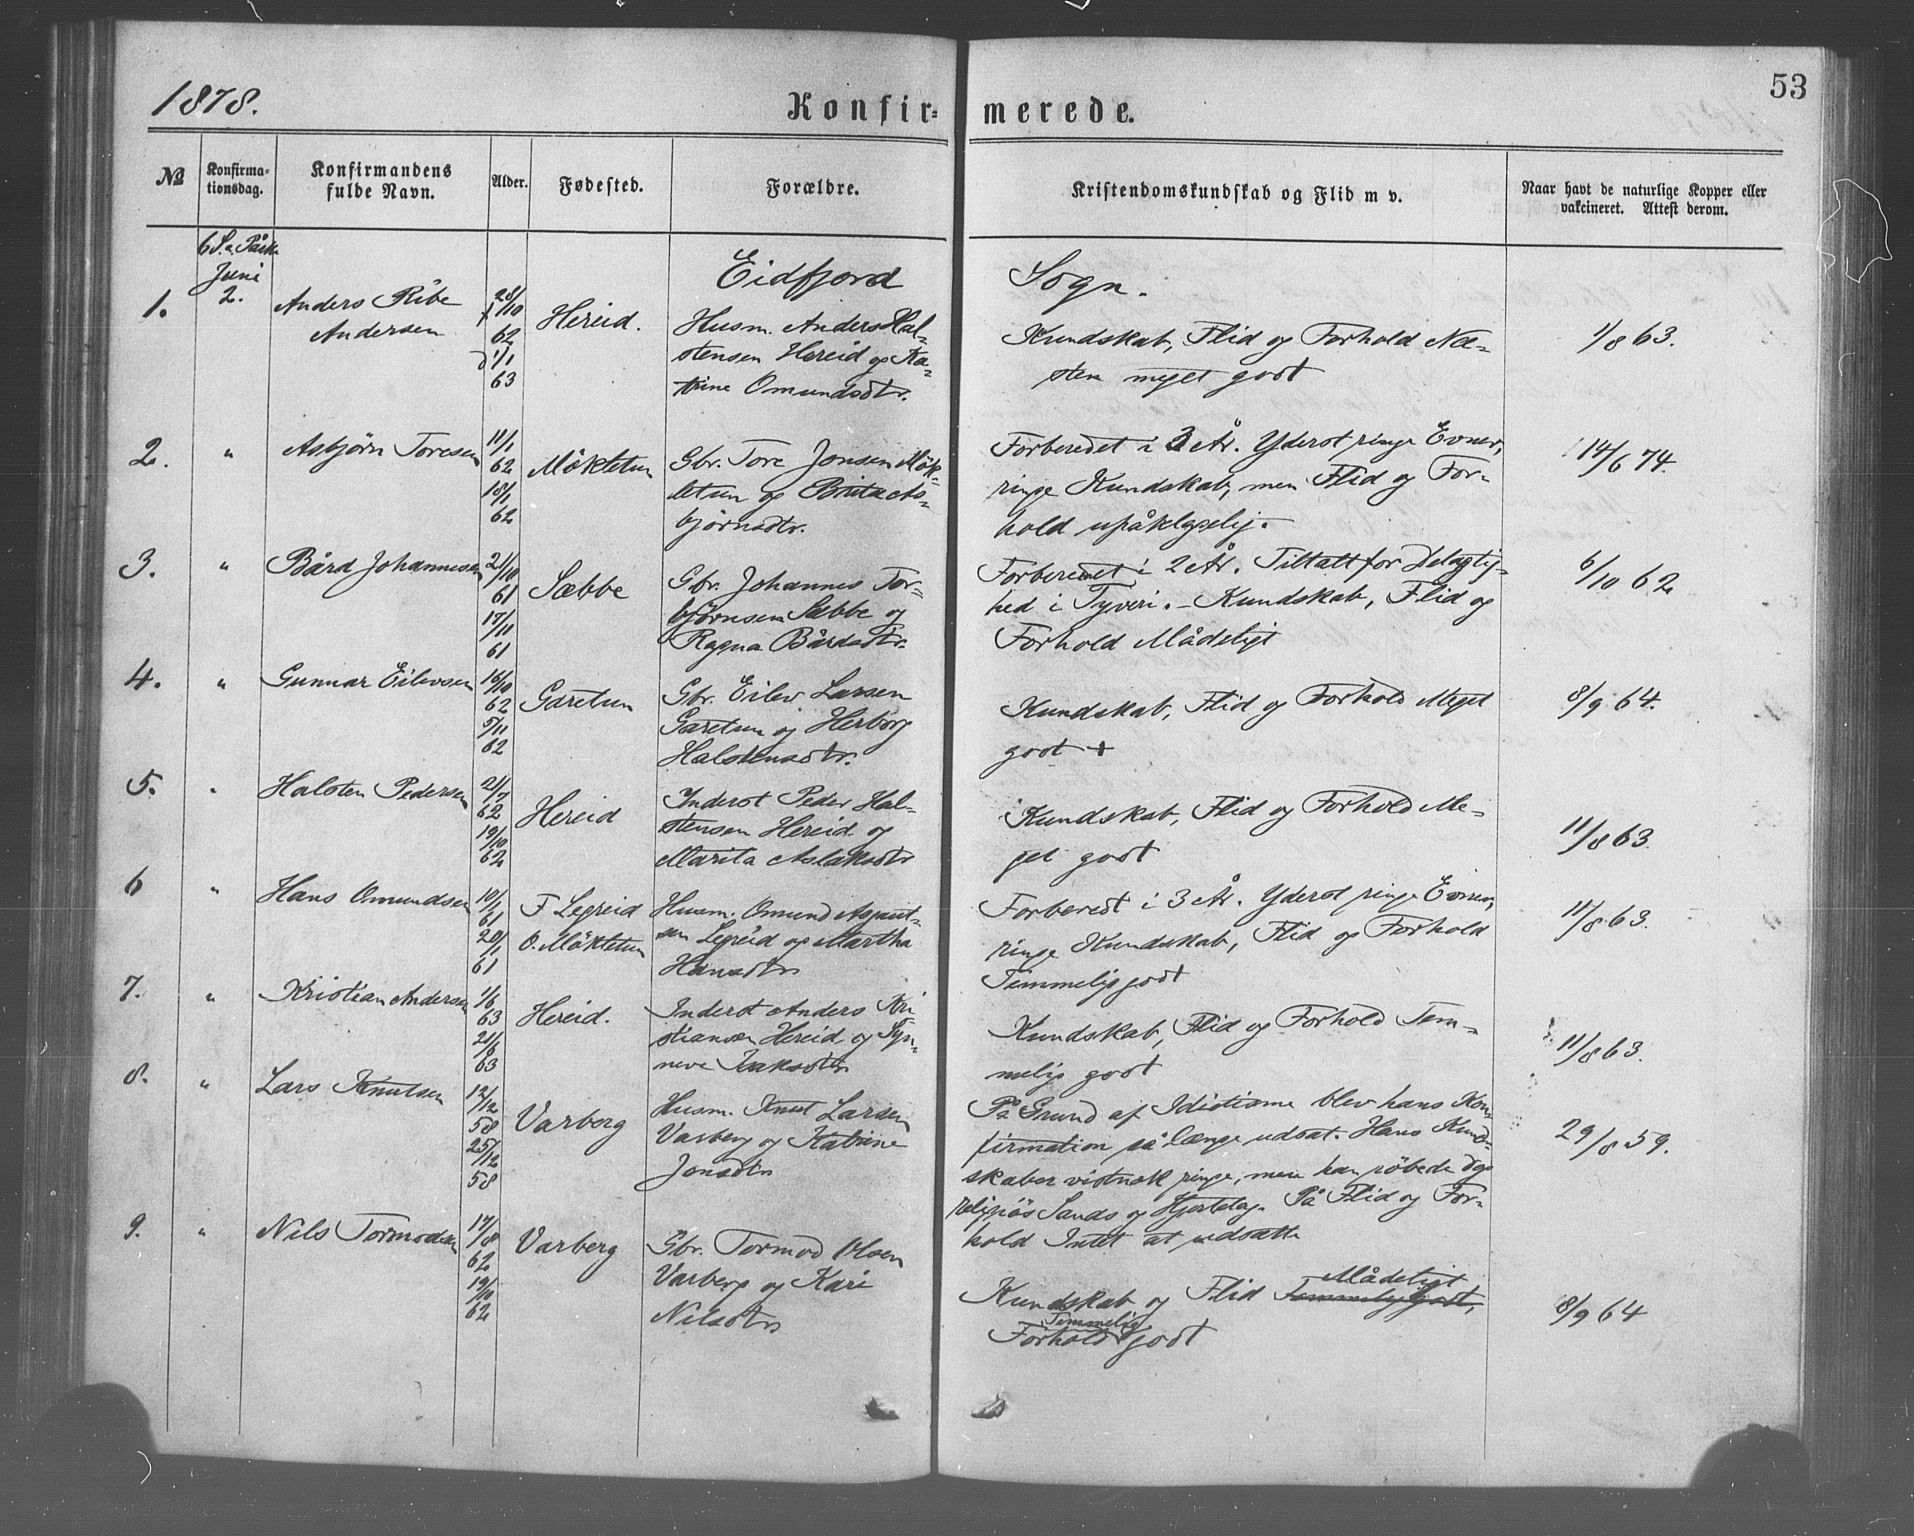 1878.
Konfir-
merede.
53
No
Konfirma-
tionsdag.
Konfirmandens
fulde Navn.
Alder.
Fødested.
Forældre.
Kristendomskundskab og Flid m v.
Naar havt de naturlige Kopper eller
vakcineret. Attest derom.
6 S. e. Påske
Juni
2.
Eidfjord
Sogn.
1.
Anders Ribe
Andersen
28/10
62
d 1/1
63
Hereid.
Husm. Anders Hal-
stensen Hereid og Ka-
trine Omundsdtr.
Kundskab, Flid og Forhold Næ-
sten meget godt
1/8 63.
2.
"
Asbjørn Toresen
11/1
62
18/1
62
Mökletun
Gbr. Tore Jonsen Mök-
letun og Brita As-
bjørnsdtr.
Forberedet i 3 År. Yderst ringe Evner,
ringe Kundskab, men Flid og For-
hold upåklagelig.
14/6 74.
3.
"
Bård Johannesen
21/10
61
17/11
61
Sæbbe
Gbr. Johannes Tor-
bjørnsen Sæbbe og
Ragna Bårdsdtr.
Forberedet i 2 År. Tiltalt for Delagtig-
hed i Tyveri. – Kundskab, Flid og
Forhold Mådeligt
6/10 62
4.
"
Gunnar Eilevsen
16/10
62
5/11
62
Garetun
Gbr. Eilev Larsen
Garetun og Herborg
Halstensdtr.
Kundskab, Flid og Forhold Meget
godt +
8/9 64.
5.
"
Halsten Pedersen
21/7
62
19/10
62
Hereid
Inderst Peder Hal-
stensen Hereid og
Marita Aslaksdtr
Kundskab, Flid og Forhold Me-
get godt
11/8 63.
6
"
Hans Omundsen
10/1
61
20/1
61
F Legreid
O. Mökletun
Husm. Omund Asgaut-
sen Legreid og Martha
Hansdtr
Forberedt i 3 År. Yderst ringe Evner,
ringe Kundskab, Flid og Forhold
Temmelig godt
11/8 63.
7.
"
Kristian Andersen
1/6
63
21/6
63
Hereid.
Inderst Anders Kri
stiansen Hereid og Syn-
neve Isaksdtr
Kundskab, Flid og Forhold Tem-
melig godt
11/8 63.
8.
"
Lars Knutsen
12/12
58
25/12
58
Varberg
Husm. Knut Larsen
Varberg og Katrine
Jonsdtr
På Grund af Idiotisme blev hans Kon-
firmation så længe udsat. Hans Kund-
skaber vistnok ringe, men han røbede dog
religiøs Sands og Hjertelag. På Flid og For-
hold Intet at udsætte
29/8 59.
9.
"
Nils Tormodsen
17/8
62
19/10
62
Varberg
Gbr. Tormod Olsen
Varberg og Kari
Nilsdtr
Mådeligt
Kundskab og Flid Temmelig godt,
Temmelig
Forhold godt
8/9 64